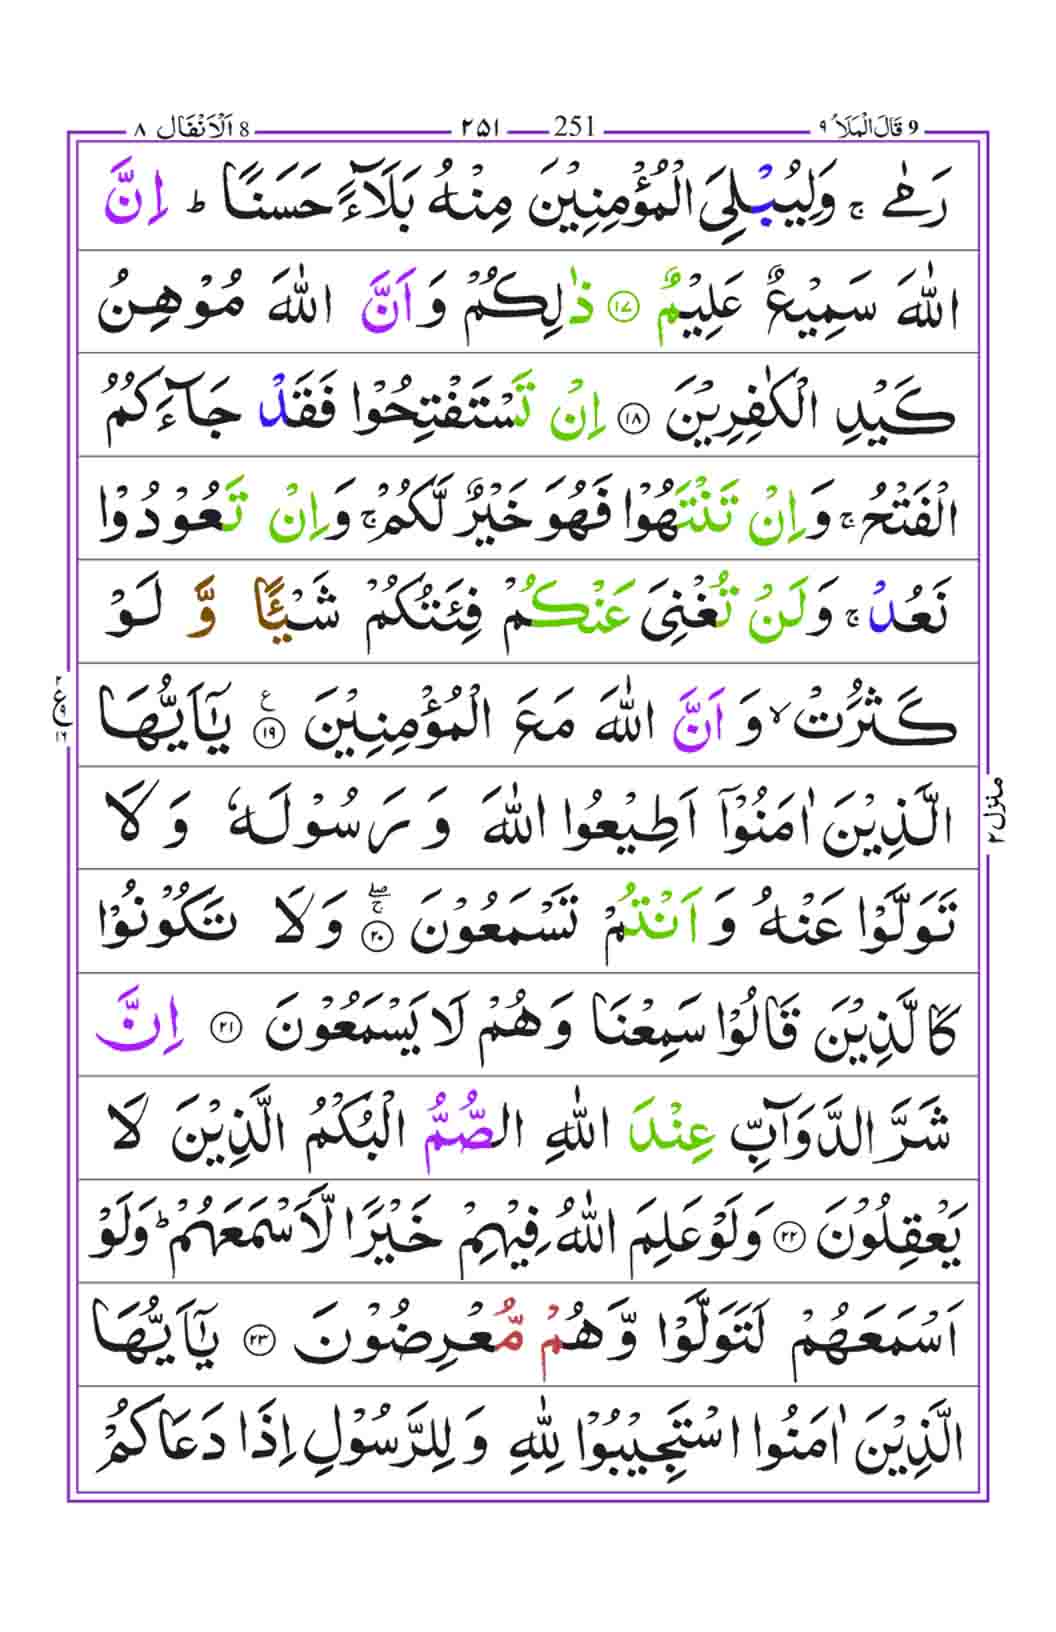 9 قَالَ الْمَلَاُ ٩ 251 ٢٥١ 8 اَلْاَنْفَال ٨
رَمٰى ۚ وَلِيُبْلِىَ الْمُؤْمِنِيْنَ مِنْهُ بَلَآءً حَسَنًا ؕ اِنَّ
اللّٰهَ سَمِيْعٌ عَلِيْمٌ ﴿١٧﴾ ذٰلِكُمْ وَ اَنَّ اللّٰهَ مُوْهِنُ
كَيْدِ الْكٰفِرِيْنَ ﴿١٨﴾ اِنْ تَسْتَفْتِحُوْا فَقَدْ جَآءَكُمُ
الْفَتْحُ ۚ وَاِنْ تَنْتَهُوْا فَهُوَ خَيْرٌ لَّكُمْ ۚ وَاِنْ تَعُوْدُوْا
نَعُدْ ۚ وَلَنْ تُغْنِىَ عَنْكُمْ فِئَتُكُمْ شَيْئًا وَّ لَوْ
كَثُرَتْ ۙ وَ اَنَّ اللّٰهَ مَعَ الْمُؤْمِنِيْنَ ﴿١٩﴾ ع يٰۤاَيُّهَا
ع
٩
١٦
الَّذِيْنَ اٰمَنُوْۤا اَطِيْعُوا اللّٰهَ وَ رَسُوْلَهٗ وَ لَا
منزل ٢
تَوَلَّوْا عَنْهُ وَ اَنْتُمْ تَسْمَعُوْنَ ﴿٢٠﴾ ۖۚ وَ لَا تَكُوْنُوْا
كَالَّذِيْنَ قَالُوْا سَمِعْنَا وَهُمْ لَا يَسْمَعُوْنَ ﴿٢١﴾ اِنَّ
شَرَّ الدَّوَآبِّ عِنْدَ اللّٰهِ الصُّمُّ الْبُكْمُ الَّذِيْنَ لَا
يَعْقِلُوْنَ ﴿٢٢﴾ وَلَوْ عَلِمَ اللّٰهُ فِيْهِمْ خَيْرًا لَّاَسْمَعَهُمْ ؕ وَلَوْ
اَسْمَعَهُمْ لَتَوَلَّوْا وَّهُمْ مُّعْرِضُوْنَ ﴿٢٣﴾ يٰۤاَيُّهَا
الَّذِيْنَ اٰمَنُوا اسْتَجِيْبُوْا لِلّٰهِ وَ لِلرَّسُوْلِ اِذَا دَعَاكُمْ